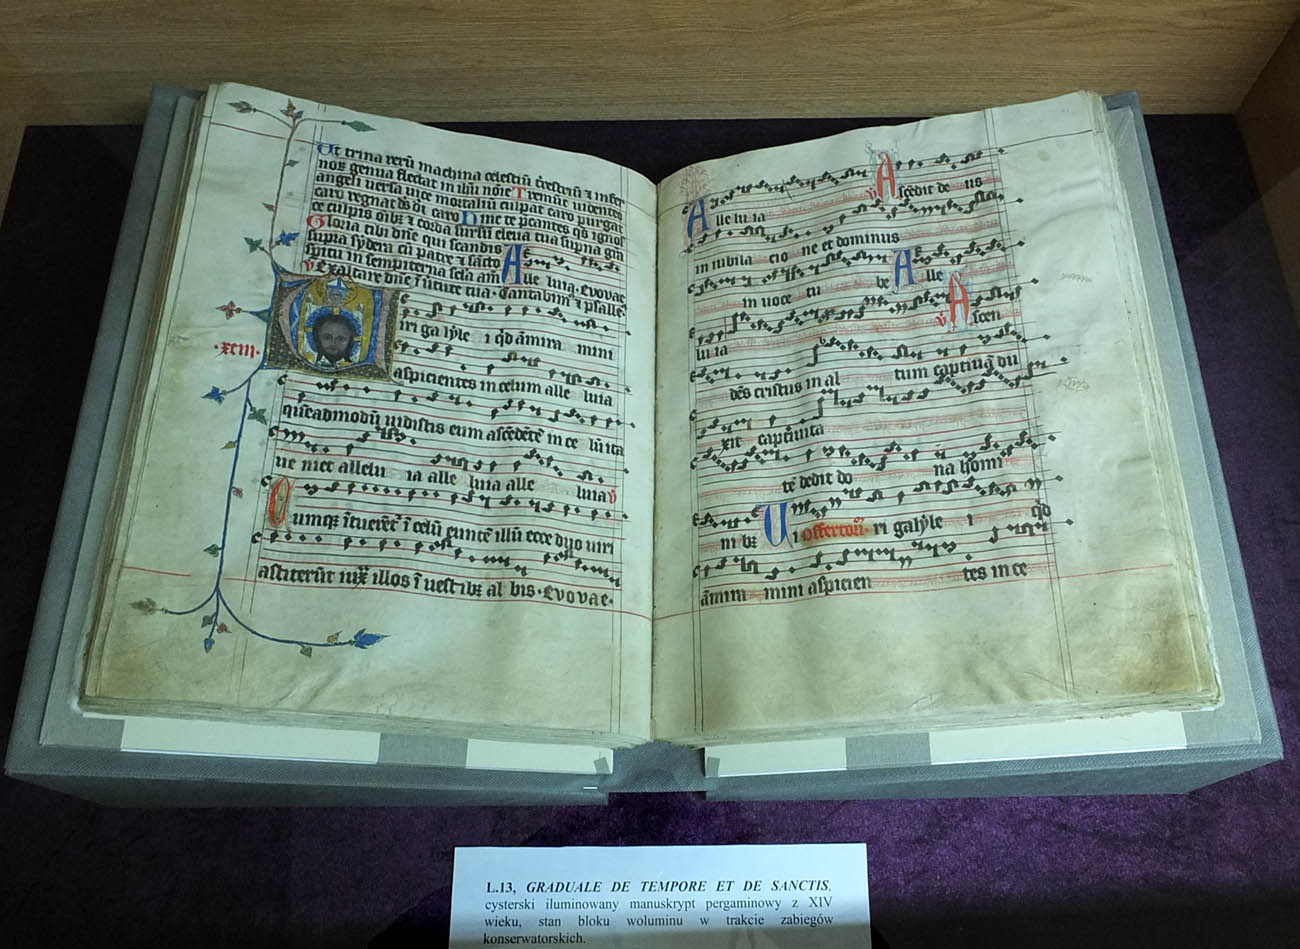 Ut trina rerū machina celestiū t̄restriū ⁊ infer
noꝝ genua flectat in illū nōie Tremūt uidentes
angeli uersa uice mortaliū culpat caro purgat
caro regnat ds̄ di caro Hinc te p̄cantes qs̄ ignos
ce culpis oībꝫ ⁊ corda sursū eleua tua supna grā
Gloria tibi dn̄e qui scandis
supra sydera cū patre ⁊ sācto
spiritu in sempiterna scla am̄ Alle luia. Evovae
V Exaltare dn̄e ī uirtute tua. Cantabimꝰ ⁊ psalle.
iri galyle i qd am̄ira mini
.xciii. aspicientes in celum alle luia
queadmodū uidistis eum ascēdētē in ce lū ita
ue niet allelu ia alle luia alle luia v
Cumqꝫ ītuerēt ī celū euntē illū ecce duo uiri
astiterūt iux illos ī uestibꝫ al bis. Evovae.
Alle lu ia v Ascēdit de us
in iubila cio ne et dominus
in uoce tu be Alle
luia v Ascen
dēs cristus in al tum captiuā du
xit captiuita
tē dedit do na homi
ni bꝫ Vi offertoriū ri galyle i qd
am̄ira mini aspicien tes in ce
L.13, GRADUALE DE TEMPORE ET DE SANCTIS,
cysterski iluminowany manuskrypt pergaminowy z XIV
wieku, stan bloku woluminu w trakcie zabiegów
konserwatorskich.